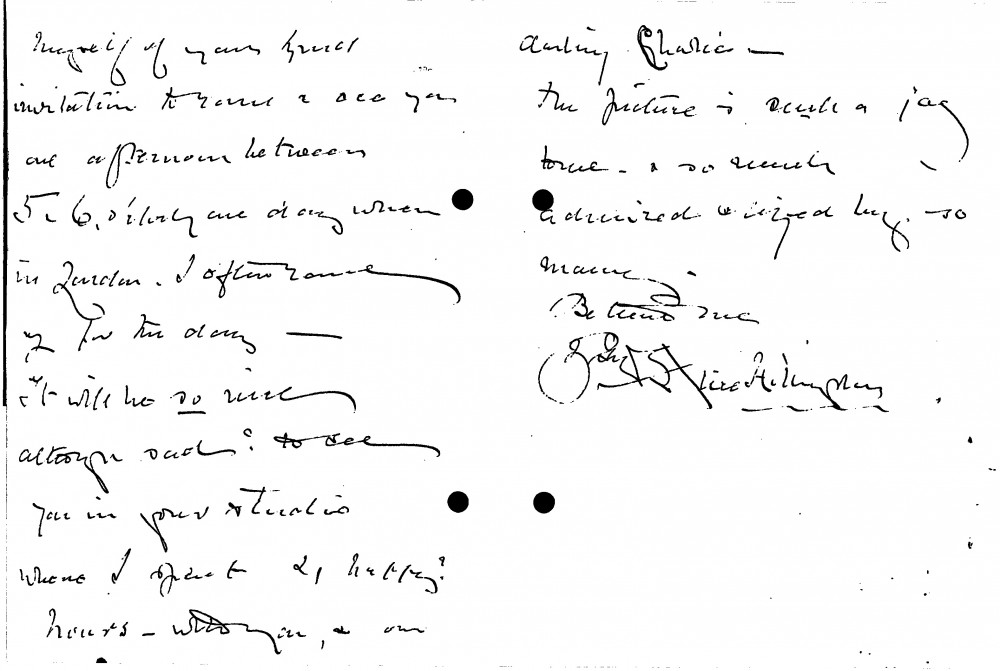 myself of your kind
invitation to come & see you
one afternoon between
5 & 6, o'clock one day when
in London. I often come
up for the day —
it will be so nice
although sad? to see
you in your studio
where I spent happy?
hours — with you, & our
darling Charlie —
the picture is such a joy
to me - & so much
admired & by. so
many.
Believe me